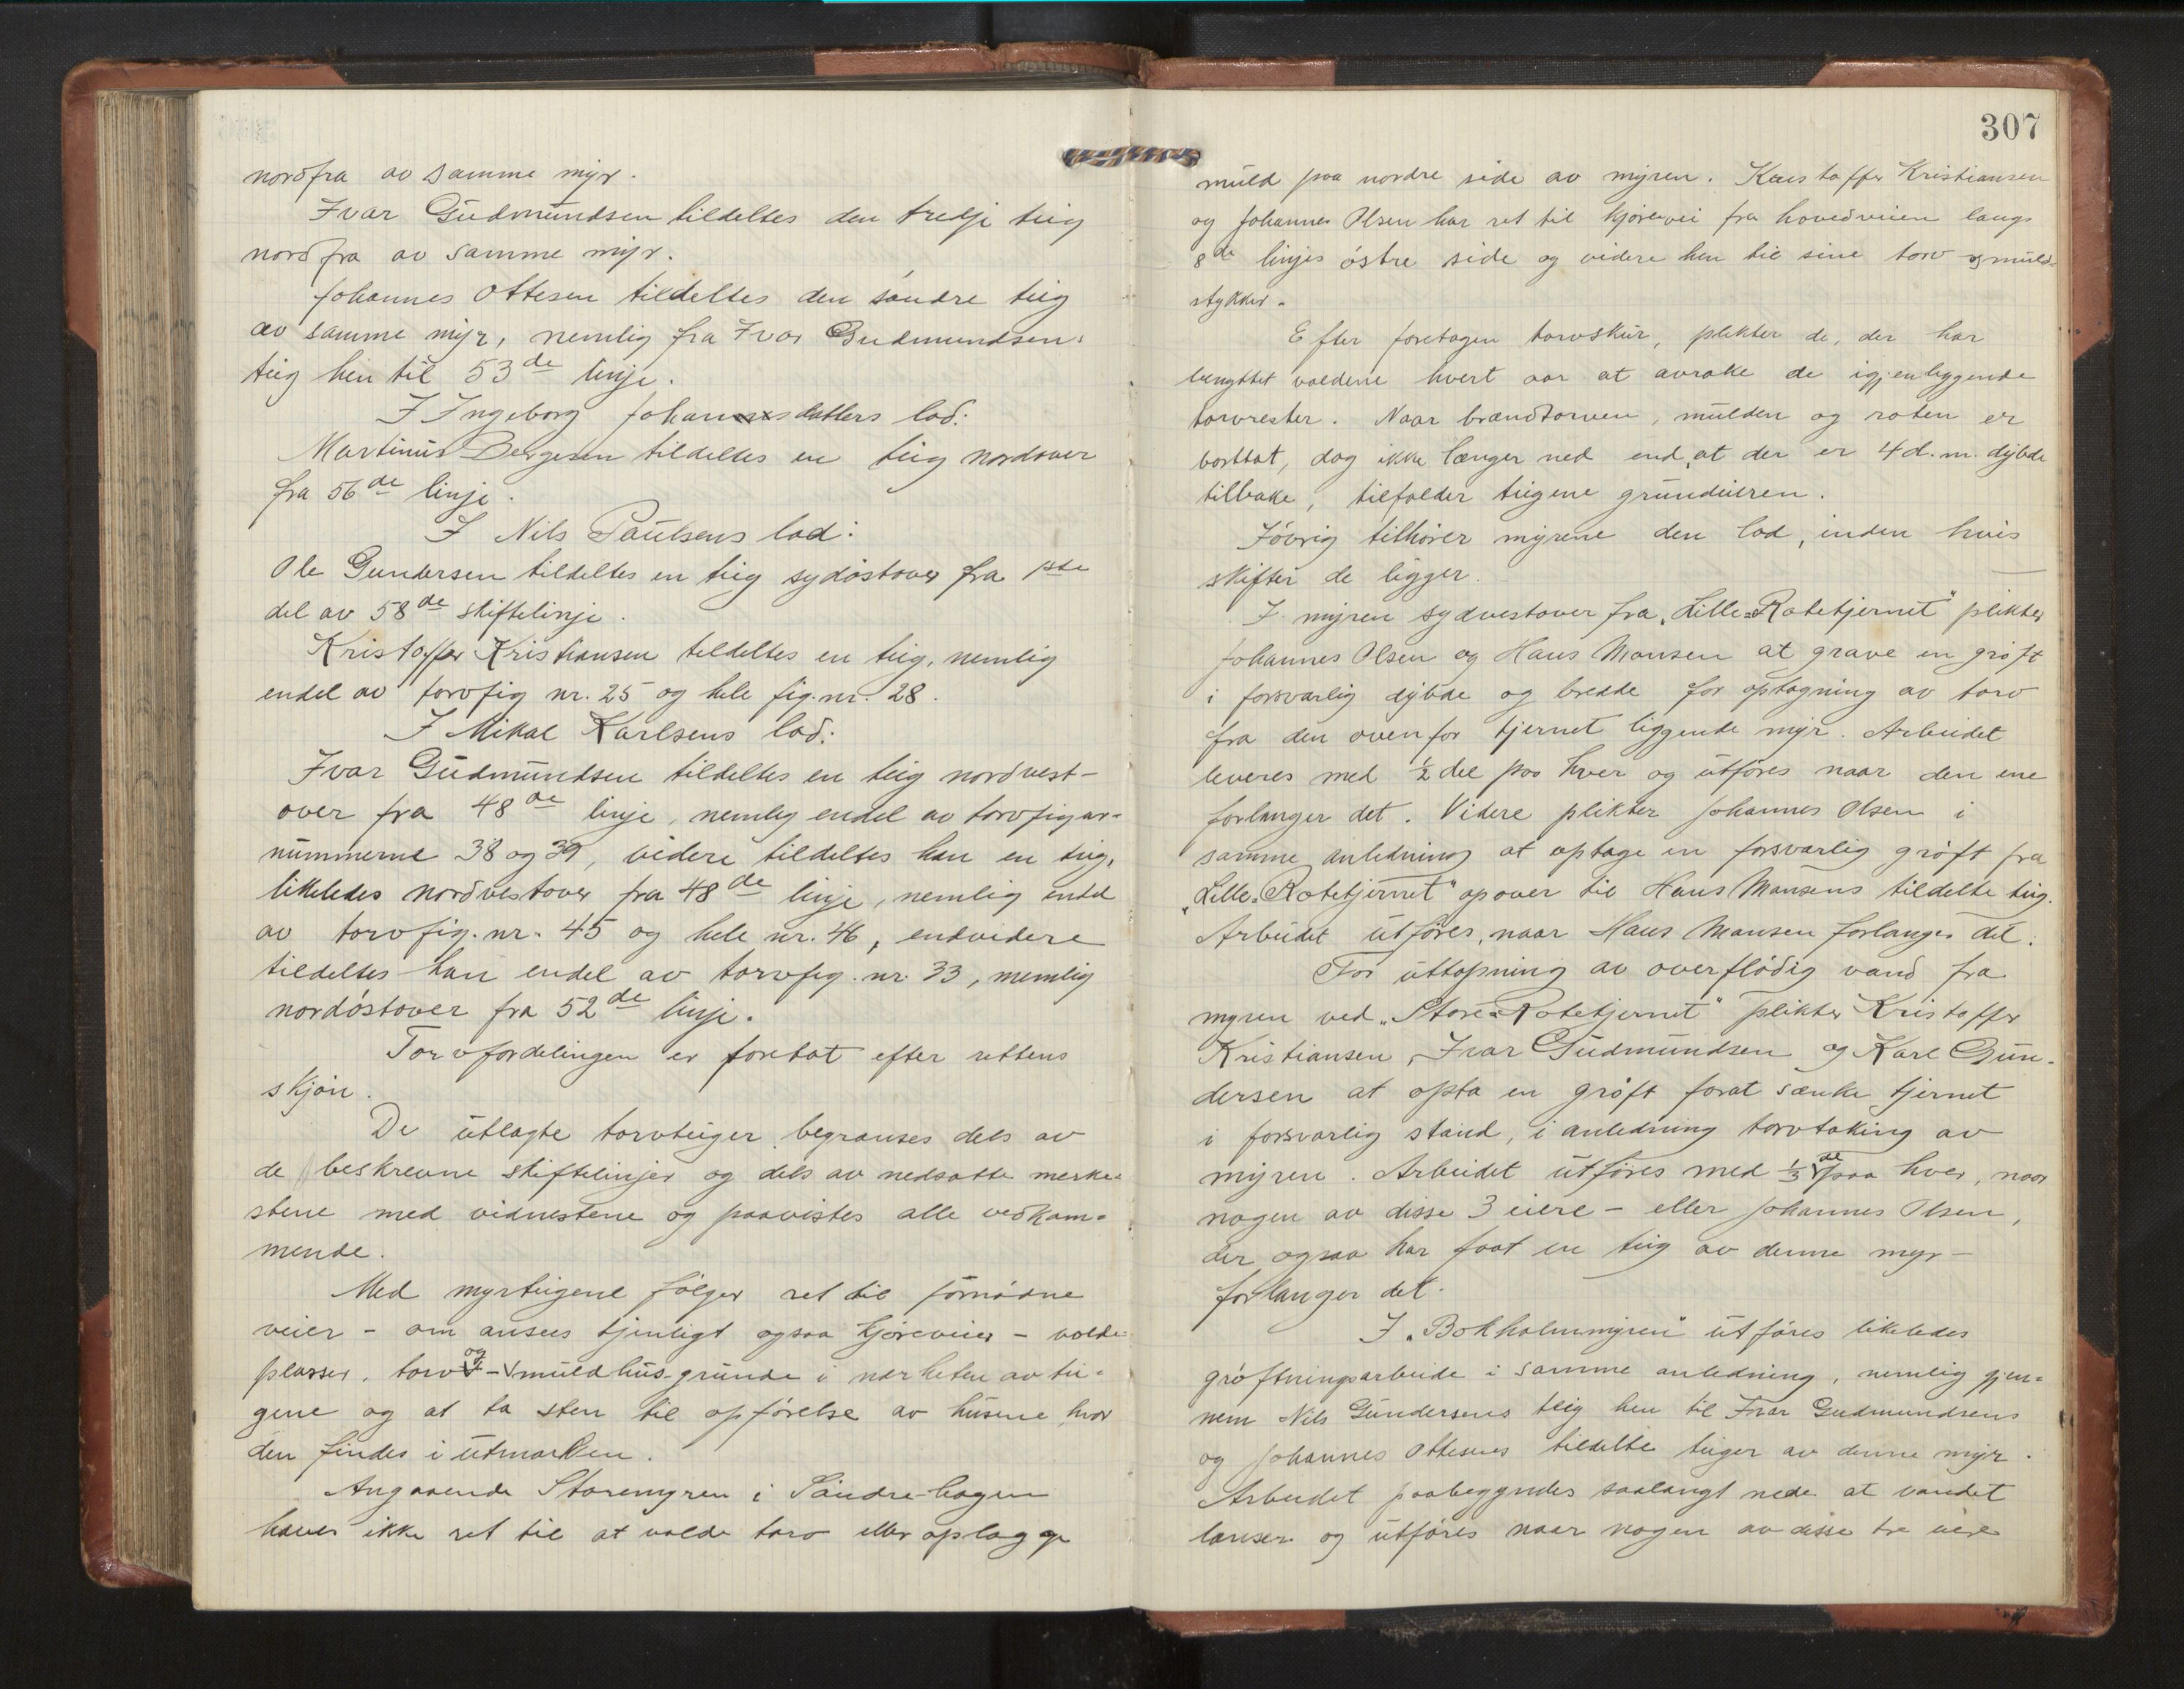 nordfra av samme myr.
Ivar Gudmundsen tildeltes den tredje teig
nordfra av samme myr.
Johannes Ottesen tildeltes den søndre teig
av samme myr, nemlig fra Ivar Gudmundsens
teig hen til 53de linje.
I Ingeborg Johannsdatters lod:
Martinus Bergesen tildeltes en teig nordover
fra 56de linje.
I Nils Paulsens lod:
Ole Gundersen tildeltes en teig sydøstover fra 1ste
del av 58de skiftelinje.
Kristoffer Kristiansen tildeltes en teig, nemlig
endel av torvfig nr. 25 og hele fig. nr. 28.
I Mikal Karlsens lod:
Ivar Gudmundsen tildeltes en teig nordvest-
over fra 48de linje, nemlig endel av torvfigur-
nummerne 38 og 39, videre tildeltes han en teig,
likeledes nordvestover fra 48de linje, nemlig endel
av torvfig. nr. 45 og hele nr. 46, endvidere
tildeltes han endel av torvfig. nr. 33, nemlig
nordøstover fra 52de linje.
Torvfordelingen er foretat efter rettens
skjøn.
De utlagte torvteiger begrænses dels av
de beskrevne skiftelinjer og dels av nedsatte merke-
stene med vidnestene og paavistes alle vedkom-
mende.
Med myrteigene følger ret til fornødne
veier - om ansees tjenligt ogsaa kjøreveier - volde-
plasser, torv- og muldhus-grunde i nærheten av tei-
gene og at ta sten til opførelse av husene hvor
den findes i utmarken.
Angaaende Storemyren i Søndre-hagen
haves ikke ret til at volde torv eller oplægge
307
muld paa nordre side av myren. Kristoffer Kristiansen
og Johannes Olsen har ret til kjørevei fra hovedveien langs
8de linjes østre side og videre hen til sine torv og muld-
stykker.
Efter foretagen torvskur, plikter de, der har
benyttet voldene hvert aar at avrake de igjenliggende
torvrester. Naar brændtorven, mulden og roten er
borttat, dog ikke længer ned end at der er 4 d.m. dybde
tilbake, tilfalder teigene grundeieren.
Iøvrig tilhører myrene den lod, inden hvis
skifter de ligger.
I myren sydvestover fra "Lille-Rotetjernet" plikter
Johannes Olsen og Hans Monsen at grave en grøft
i forsvarlig dybde og bredde for optagning av torv
fra den ovenfor tjernet liggende myr. Arbeidet
leveres med ½ del paa hver og utføres naar den ene
forlanger det. Videre plikter Johannes Olsen i
samme anledning at optage en forsvarlig grøft fra
"Lille-Rotetjernet" opover til Hans Monsens tildelte teig.
Arbeidet utføres, naar Hans Monsen forlanger det.
For uttapning av overflødig vand fra
myren ved "Store-Rotetjernet" plikter Kristoffer
Kristiansen, Ivar Gudmundsen og Karl Gun-
dersen at opta en grøft forat sænke tjernet
i forsvarlig stand, i anledning torvtaking av
myren. Arbeidet utføres med ⅓ de paa hver, naar
nogen av disse 3 eiere - eller Johannes Olsen,
der ogsaa har faat en teig av denne myr -
forlanger det.
I "Bokholmmyren" utføres likeledes
grøftningsarbeide i samme anledning, nemlig gjen-
nem Nils Gundersens teig hen til Ivar Gudmundsens
og Johannes Ottesens tildelte teiger av denne myr.
Arbeidet paabegyndes saalangt nede at vandet
lænser og utføres naar nogen av disse tre eiere